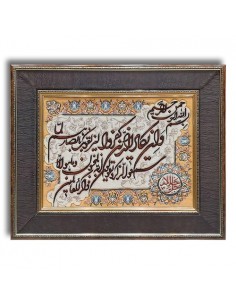 بسم الله الرحمن الرحیم
وان یکاد الذین کفروا لیزلقونک بابصارهم
لما سمعوا الذکر ویقولون انه لمجنون وما هو
الا ذکر للعالمین